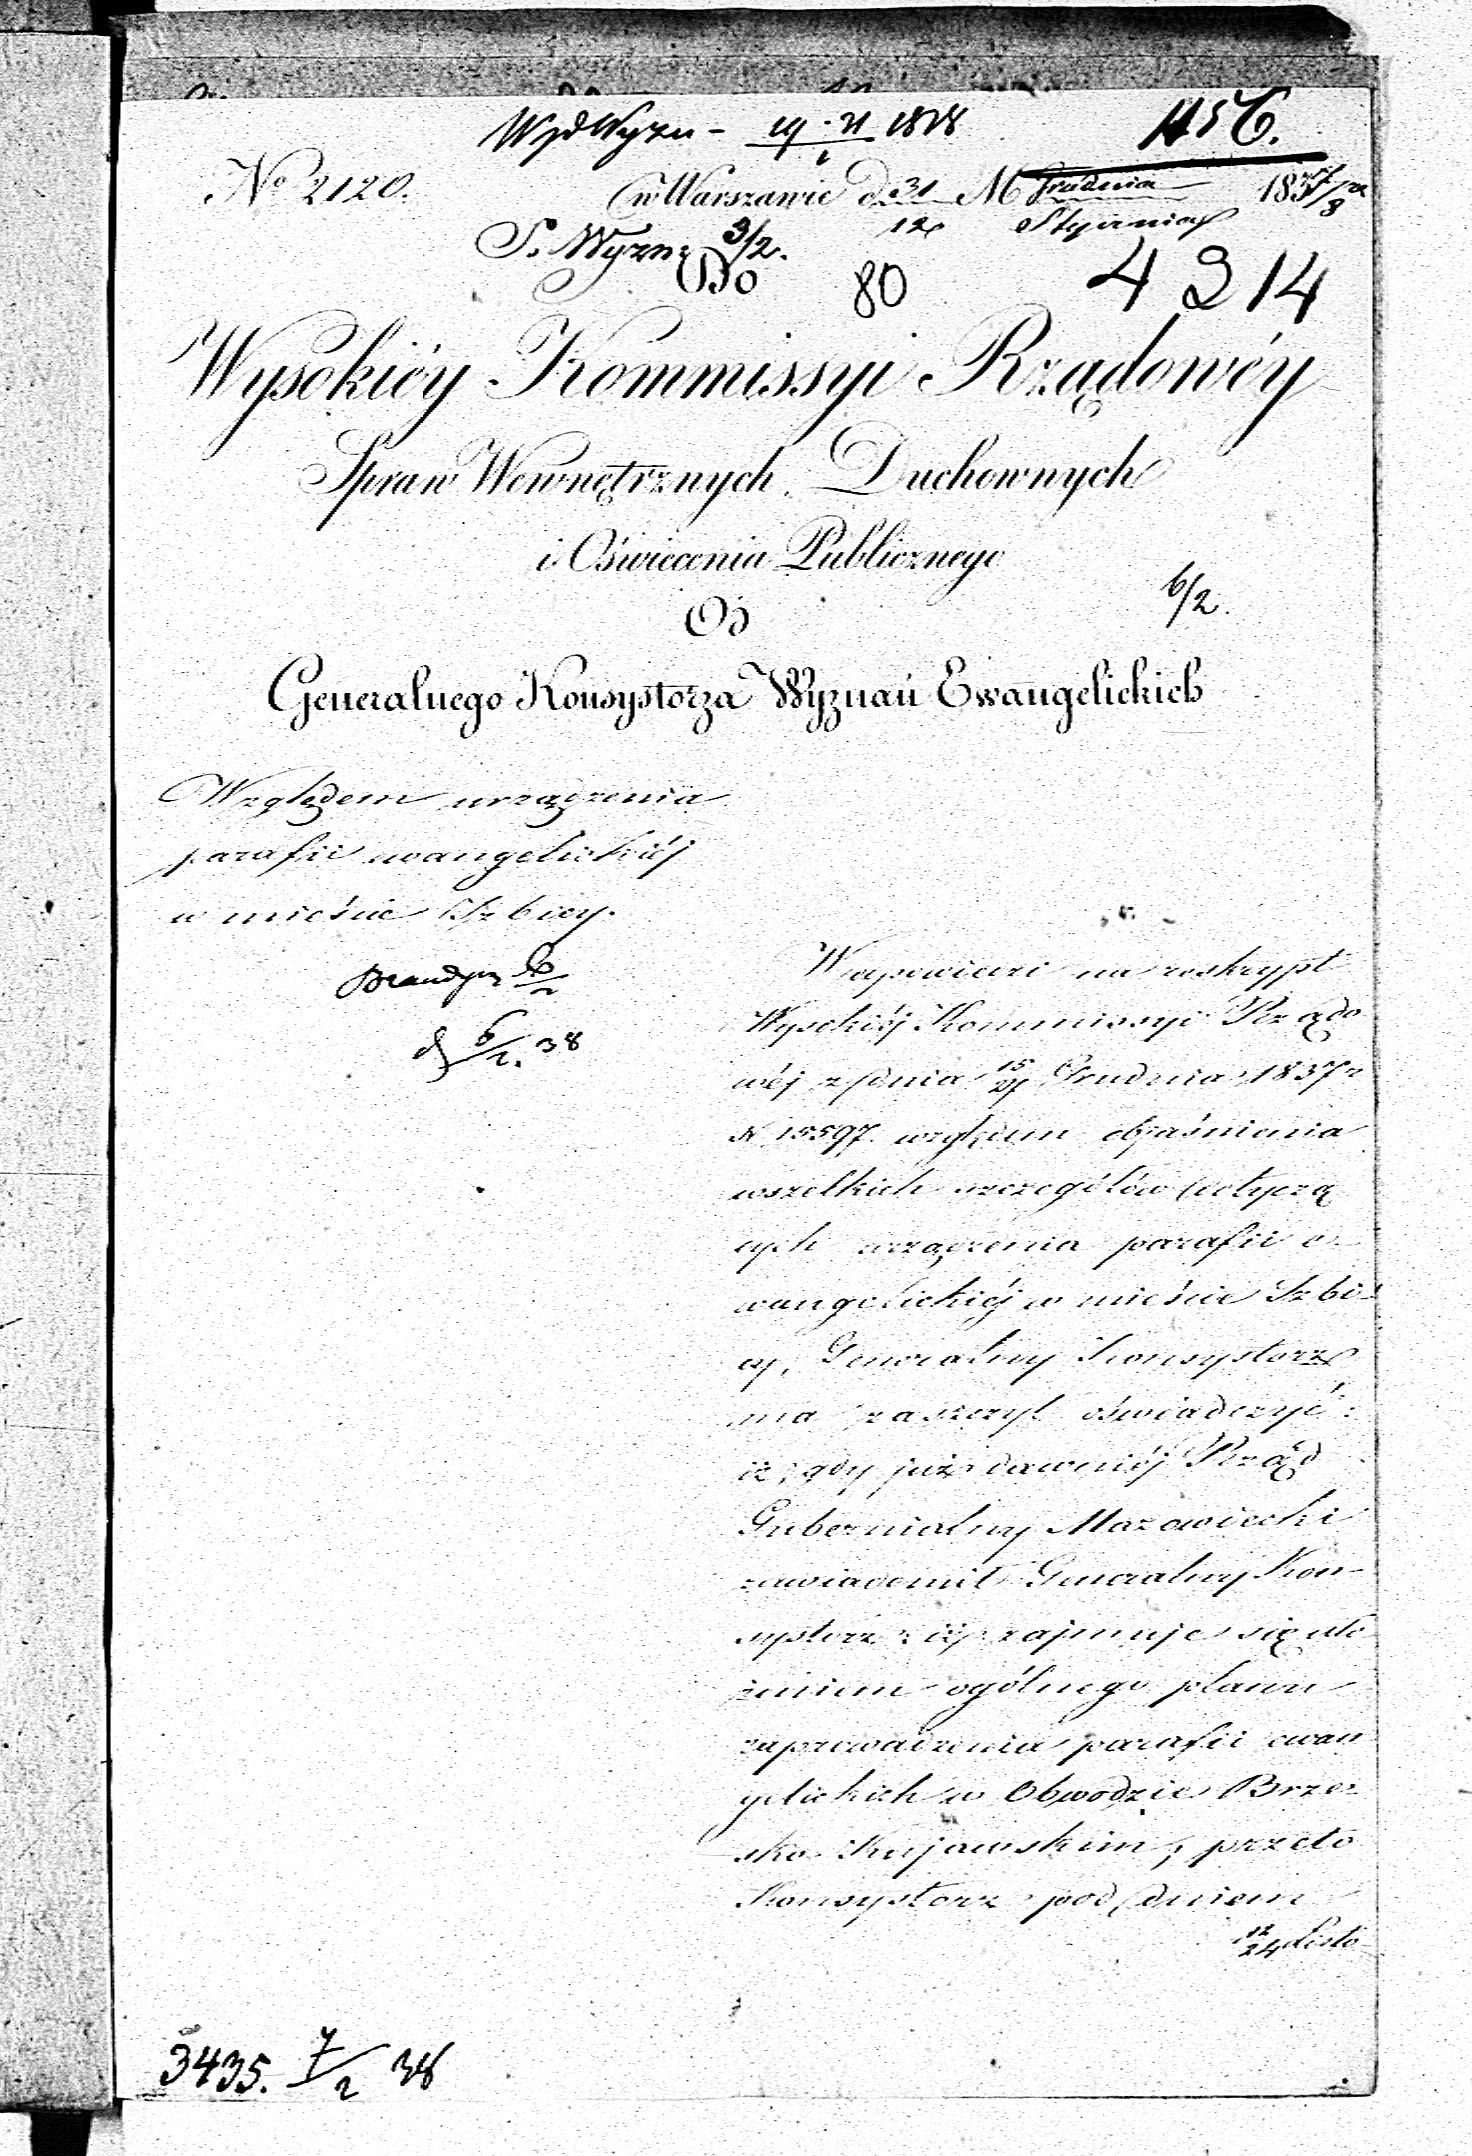 1156.
No 2120.
w Warszawie d. 31 M Grudnia 1837/8
12 Stycznia
Do
80 4314
Wysokiéy Kommissyi Rządowéy
Spraw Wewnętrznych, Duchownych
i Oświecenia Publicznego
Od
6/2.
Generalnego Konsystorza Wyznań Ewangelickich
Względem urządzenia
parafii ewangelickiéj
w mieście Izbicy.
d 6/2. 38
W odpowiedzi na reskrypt
Wysokiéj Kommissyi Rządo
wéj z dnia 15/27 Grudnia 1837 r
N 15597. względem objaśnienia
wszelkich szczegółów dotyczą
cych urządzenia parafii e-
wangelickiéj w mieście Izbi-
cy, Generalny Konsystorz
ma zaszczyt oświadczyć:
iż, gdy już dawniéj Rząd
Gubernialny Mazowiecki
zawiadomił Generalny Kon-
systorz iż zajmuje się uło
żeniem ogólnego planu
zaprowadzenia parafii ewan
gelickich w Obwodzie Brze-
sko Kujawskim, przeto
Konsystorz pod dniem
12/24 Listo
3435. 7/2 38